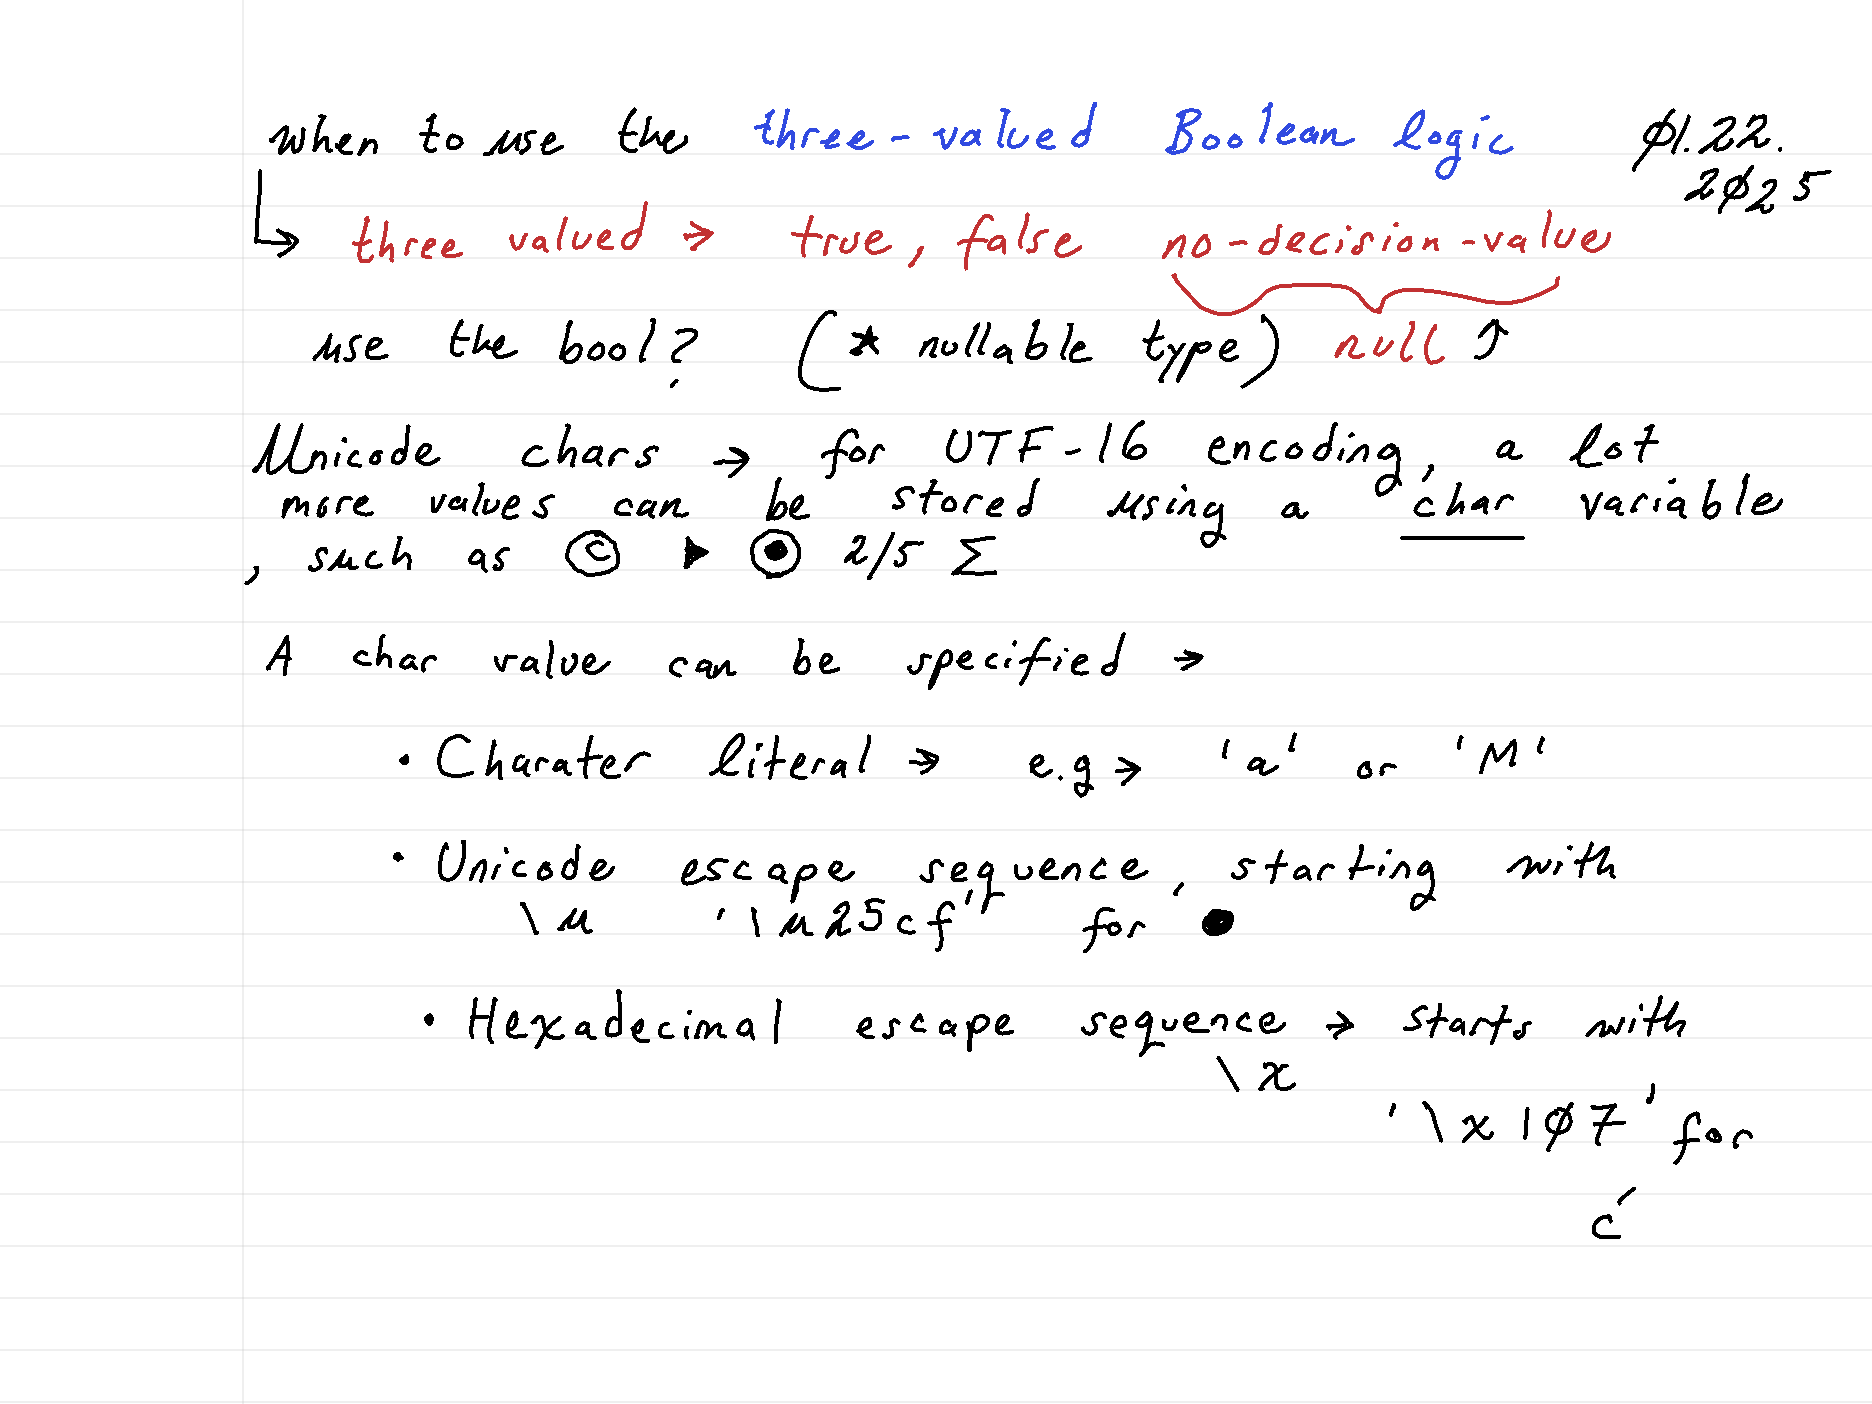 when to use the three-valued Boolean logic ø1.22.
2ø25
↳ three valued → true, false no-decision-value
use the bool? (* nullable type) null ↑
Unicode chars → for UTF-16 encoding, a lot
more values can be stored using a char variable
, such as © ▶ ◉ 2/5 Σ
A char value can be specified →
• Charater literal → e.g → 'a' or 'M'
• Unicode escape sequence, starting with
\u '\u25cf' for ●
• Hexadecimal escape sequence → starts with
\x
'\x1ø7' for
ć